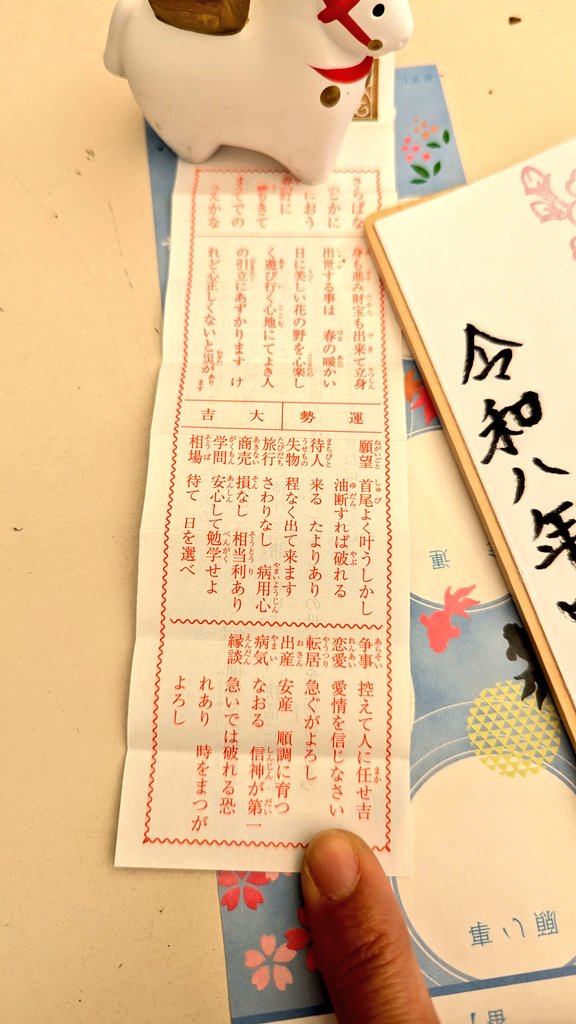 身も進み財宝も出来て立身
出世する事は　春の暖かい
日に美しい花の野を心楽し
く遊び行く心地にてよき人
の引立にあずかります　け
れど心正しくないと災があります
運勢　大吉
願望　首尾よく叶うしかし
油断すれば破れる
待人　来る　たよりあり
失物　程なく出て来ます
旅行　さわりなし　病用心
商売　損なし　相当利あり
学問　安心して勉学せよ
相場　待て　日を選べ
争事　控えて人に任せ吉
恋愛　愛情を信じなさい
転居　急ぐがよろし
出産　安産　順調に育つ
病気　なおる　信神が第一
縁談　急いでは破れる恐
れあり　時をまつが
よろし
令和八年
運
願い事